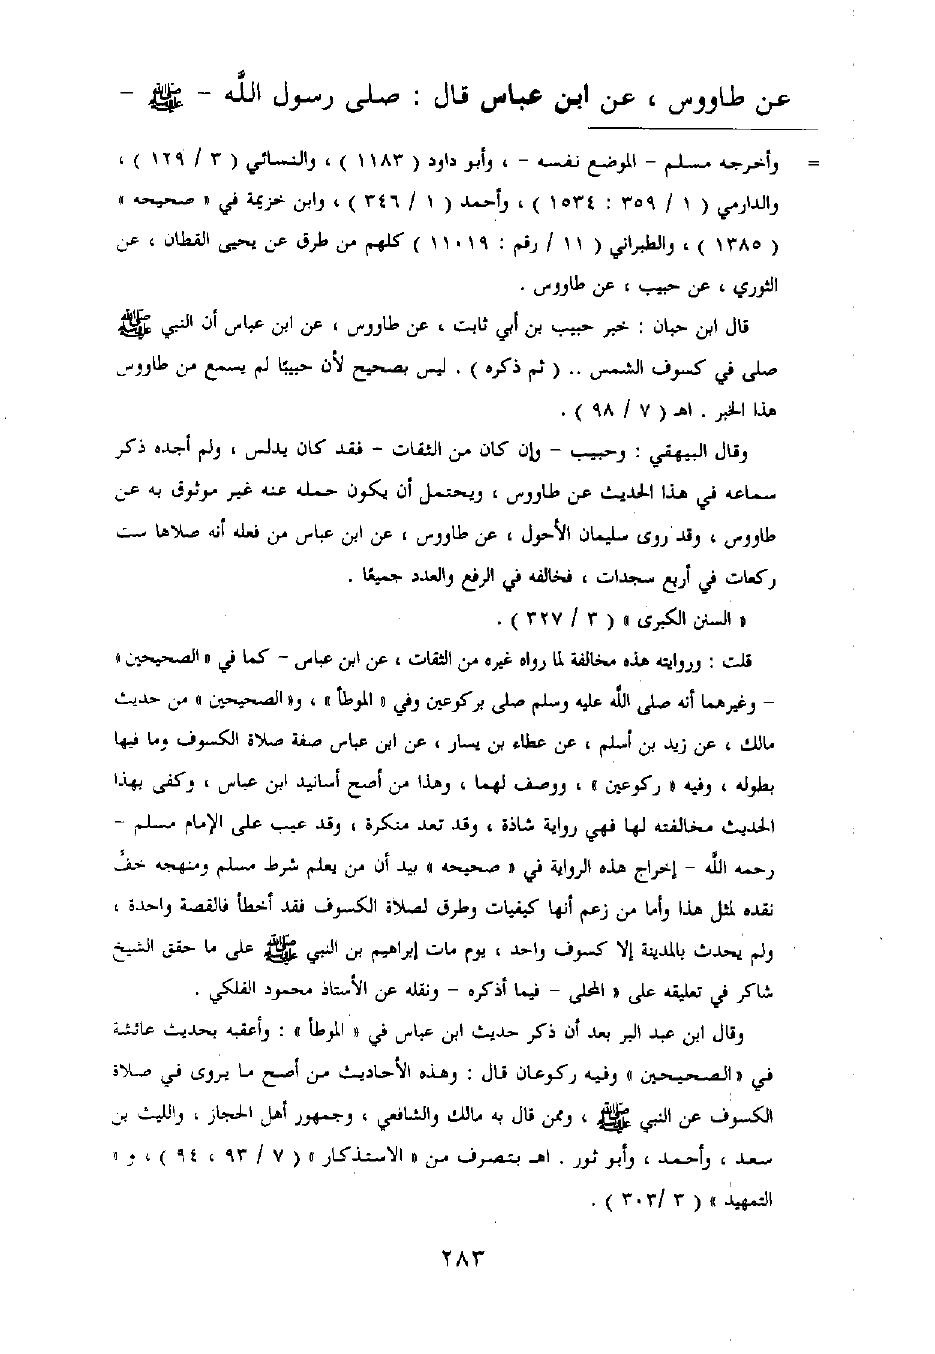 عن طاووس ، عن ابن عباس قال : صلى رسول اللَّه - ﷺ -
= وأخرجه مسلم - الموضع نفسه - ، وأبو داود ( ١١٨٣ ) ، والنسائي ( ٣ / ١٢٩ ) ،
والدارمي ( ١ / ٣٥٩ : ١٥٣٤ ) ، وأحمد ( ١ / ٣٤٦ ) ، وابن خزيمة في « صحيحه »
( ١٣٨٥ ) ، والطبراني ( ١١ / رقم : ١١٠١٩ ) كلهم من طرق عن يحيى القطان ، عن
الثوري ، عن حبيب ، عن طاووس .
قال ابن حبان : خبر حبيب بن أبي ثابت ، عن طاووس ، عن ابن عباس أن النبي ﷺ
صلى في كسوف الشمس .. ( ثم ذكره ) . ليس بصحيح لأن حبيبًا لم يسمع من طاووس
هذا الخبر . اهـ ( ٧ / ٩٨ ) .
وقال البيهقي : وحبيب - وإن كان من الثقات - فقد كان يدلس ، ولم أجده ذكر
سماعه في هذا الحديث عن طاووس ، ويحتمل أن يكون حمله عنه غير موثوق به عن
طاووس ، وقد روى سليمان الأحول ، عن طاووس ، عن ابن عباس من فعله أنه صلاها ست
ركعات في أربع سجدات ، فخالفه في الرفع والعدد جميعًا .
« السنن الكبرى » ( ٣ / ٣٢٧ ) .
قلت : وروايته هذه مخالفة لما رواه غيره من الثقات ، عن ابن عباس - كما في « الصحيحين »
- وغيرهما أنه صلى اللَّه عليه وسلم صلى بركوعين وفي « الموطأ » ، و« الصحيحين » من حديث
مالك ، عن زيد بن أسلم ، عن عطاء بن يسار ، عن ابن عباس صفة صلاة الكسوف وما فيها
بطوله ، وفيه « ركوعين » ، ووصف لهما ، وهذا من أصح أسانيد ابن عباس ، وكفى بهذا
الحديث مخالفته لها فهي رواية شاذة ، وقد تعد منكرة ، وقد عيب على الإمام مسلم -
رحمه اللَّه - إخراج هذه الرواية في « صحيحه » بيد أن من يعلم شرط مسلم ومنهجه خفَّ
نقده لمثل هذا وأما من زعم أنها كيفيات وطرق لصلاة الكسوف فقد أخطأ فالقصة واحدة ،
ولم يحدث بالمدينة إلا كسوف واحد ، يوم مات إبراهيم بن النبي ﷺ على ما حقق الشيخ
شاكر في تعليقه على « المحلى - فيما أذكره - ونقله عن الأستاذ محمود الفلكي .
وقال ابن عبد البر بعد أن ذكر حديث ابن عباس في « الموطأ » : وأعقبه بحديث عائشة
في « الصحيحين » وفيه ركوعان قال : وهذه الأحاديث من أصح ما يروى في صلاة
الكسوف عن النبي ﷺ ، وممن قال به مالك والشافعي ، وجمهور أهل الحجاز ، والليث بن
سعد ، وأحمد ، وأبو ثور . اهـ بتصرف من « الاستذكار » ( ٧ / ٩٣ ، ٩٤ ) ، و «
التمهيد » ( ٣ /٣٠٣ ) .
٢٨٣